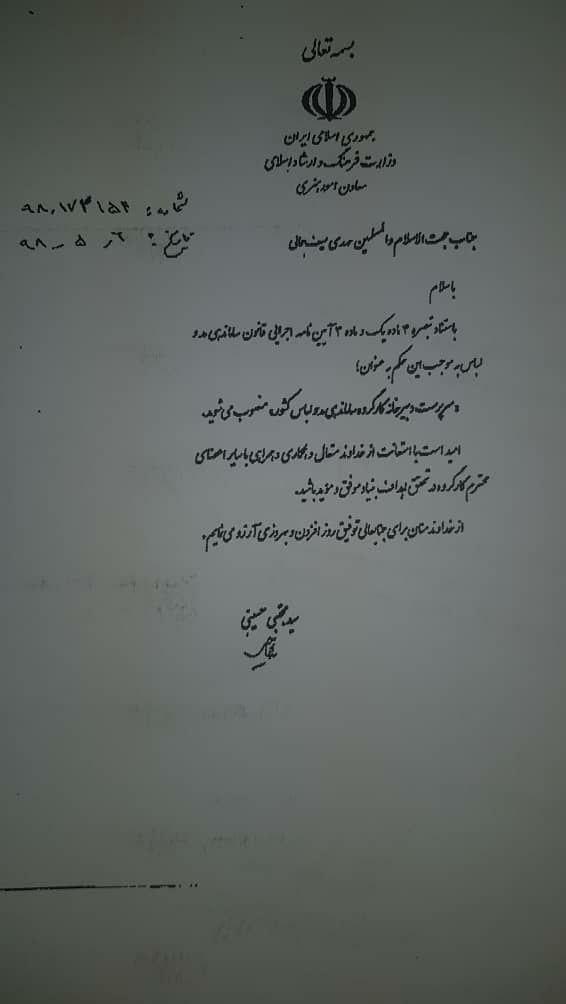 بسمه تعالی
جمهوری اسلامی ایران
وزارت فرهنگ و ارشاد اسلامی
معاون امور هنری
شماره: ۹۸،۱۷۳۱۵۲
تاریخ: ۹۸ ــ ۵
جناب حجت الاسلام والمسلمین مهدی سیف جمالی
باسلام
باستناد تبصره ۳ ماده یک و ماده ۳ آیین نامه اجرایی قانون ساماندهی مد و
لباس به موجب این حکم به عنوان؛
«سرپرست دبیرخانه کارگروه ساماندهی مد و لباس کشور» منصوب می شوید.
امید است با استعانت از خداوند متعال و همکاری و همراهی با سایر اعضای
محترم کارگروه در تحقق اهداف بنیاد موفق و مؤید باشید.
از خداوند منان برای جنابعالی توفیق روز افزون و بهروزی آرزو می نمایم.
سید مجتبی حسینی